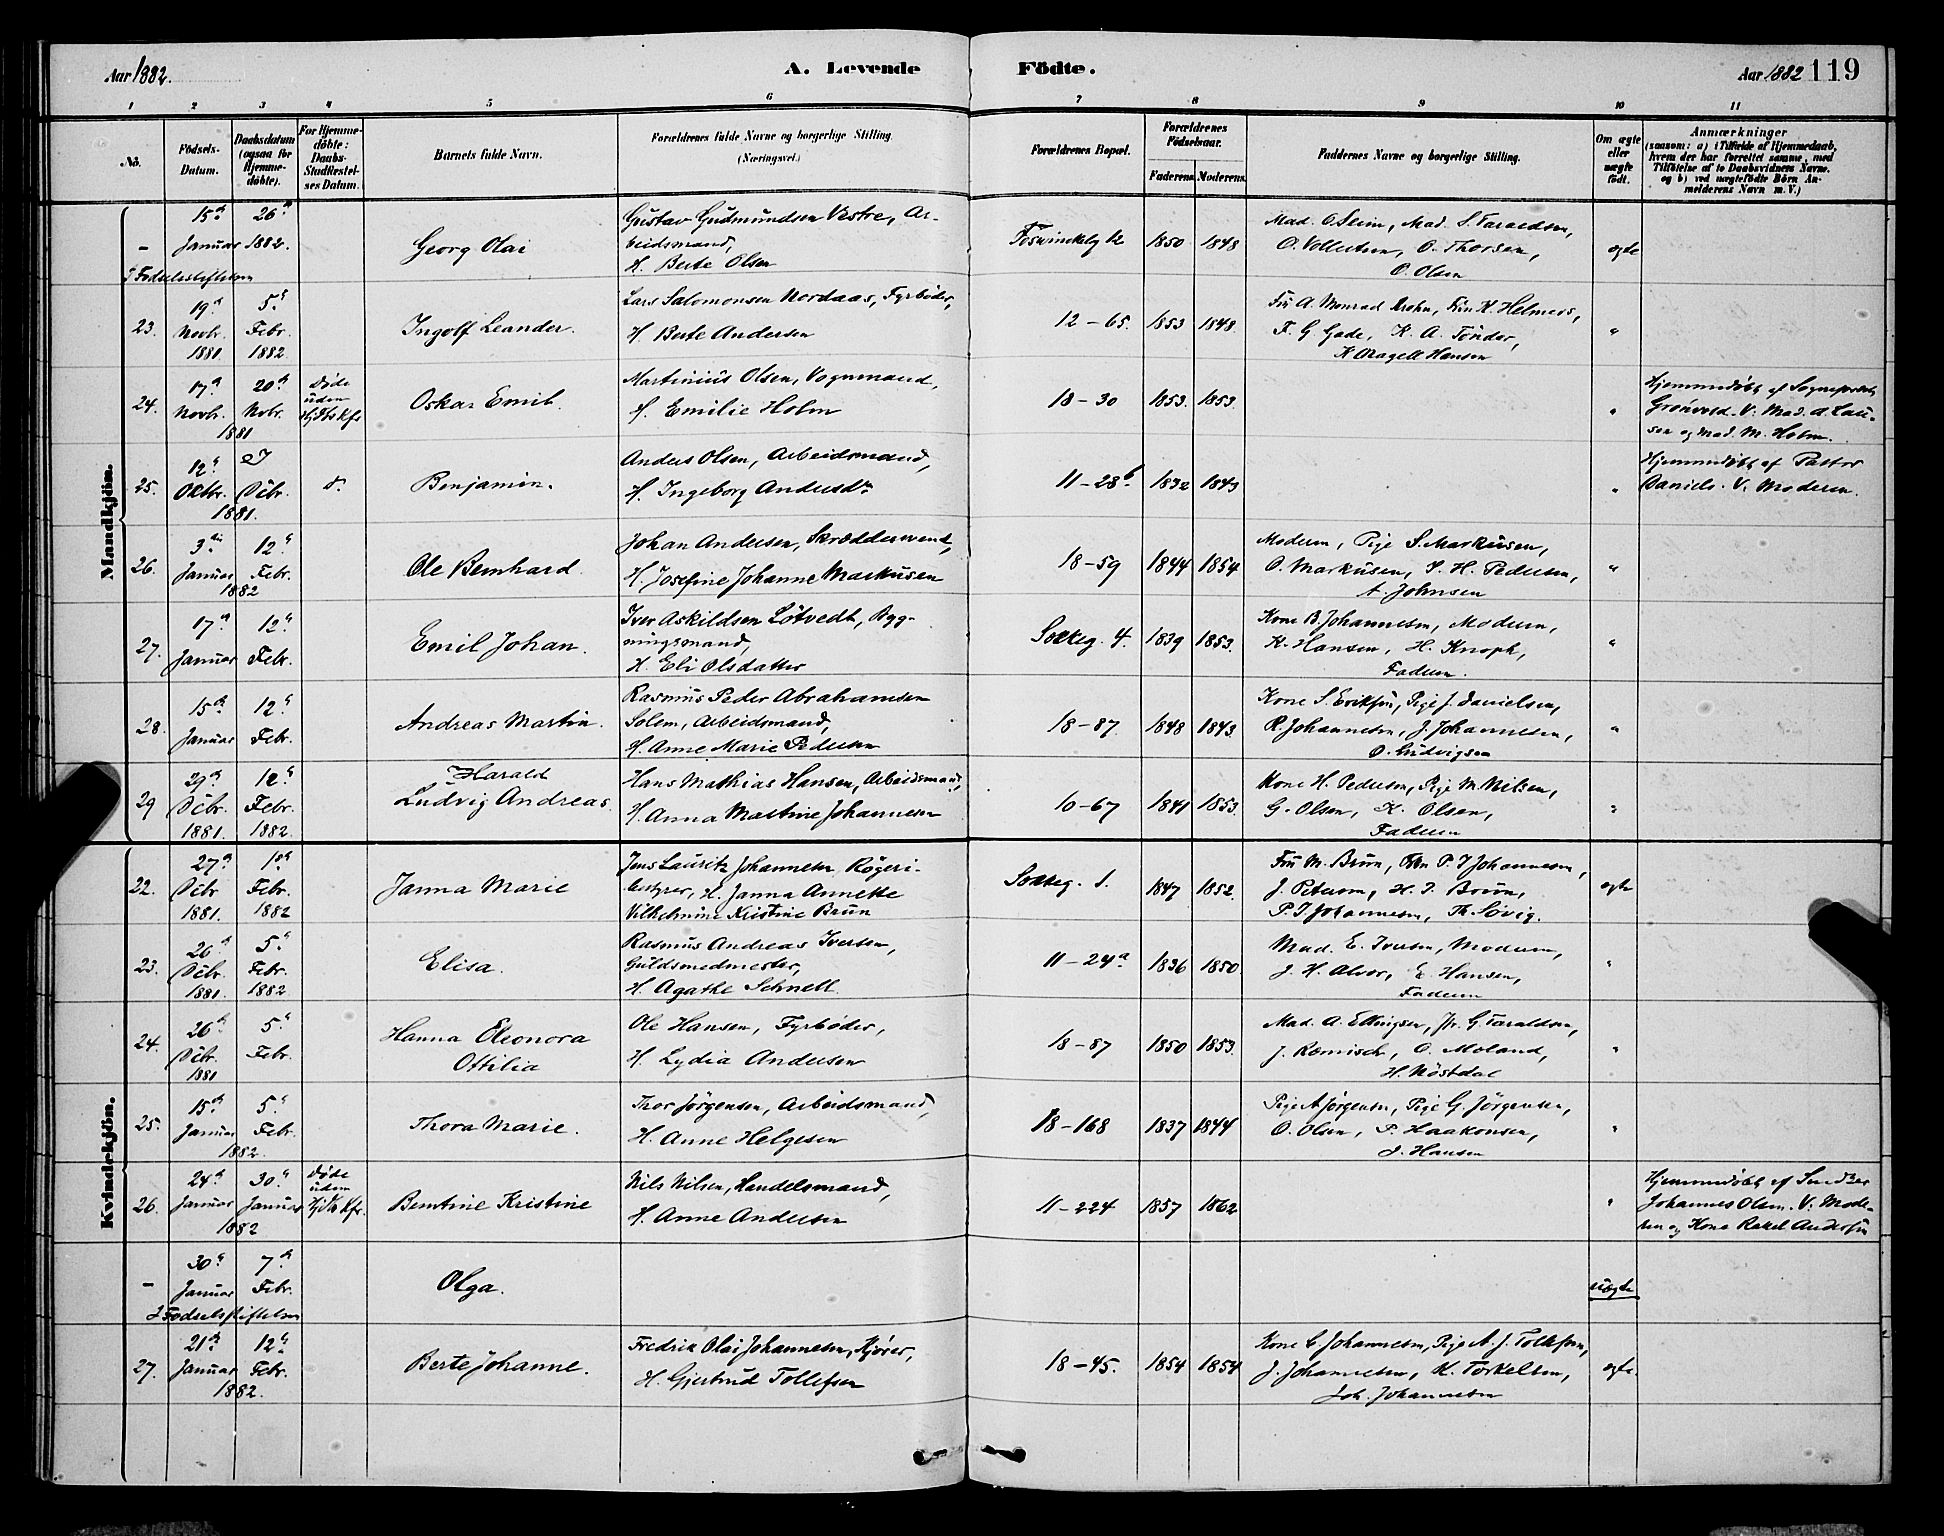 Aar 1882. A. Levende Födte. Aar 1882 119
1 2 3 4 5 6 7 8 9 10 11
No. Födsels-Datum. Daabsdatum (ogsaa for Hjemmedöbte). For Hjemmedöbte: Daabs-Stadfestelses Datum. Barnets fulde Navn. Forældrenes fulde Navne og borgerlige Stilling. (Næringsvei.) Forældrenes Bopæl. Forældrenes Födselsaar. Faderens Moderens Faddernes Navne og borgerlige Stilling. Om ægte eller uægte födt. Anmærkninger (saasom: a) i Tilfælde af Hjemmedaab, hvem der har forrettet samme, med Tilföielse af to Daabsvidners Navne, og b) ved uægtefödte Börn Anmelderens Navn m. V.)
Mandkjön.
– 15de Januar 26de 1882. Georg Olai Gustav Gudmundsen Vestre, Ar-
beidsmand,
H. Berte Olsen 12 1850 1848 Mad. O Sleim, Mad. S. Taraldsen,
O. Vollertsen, O. Thorsen,
O. Olsen ægte
I Fødselsstiftelsen
23. 19de Novbr. 1881 5te Febr. 1882 Ingolf Leander. Lars Salomonsen Nordaas, Fyrbøder,
H. Berte Andersen 12-65. 1853 1848 Fru A. Monrad Krohn, Frkn K. Helmers,
F. G. Gade, K. A. Tönder,
K Hagelt Hansen "
24. 17de Novbr. 20de Nvbr. 1881 Døde uden Oskar Emil. Martinius Olsen, Vognmand,
H. Emilie Holm 18-30 1853. 1853. " Hjemmedøbt af Sognepræst
Grönvold. V. Mad. A. Lau-
sen og Mad. M. Holm.
25. 12te Oktbr. 27 Dcbr. 1881. d. Benjamin. Anders Olsen, Arbeidsmand,
H. Ingeborg Andersdtr 11-28b 1832 1843 " Hjemmedøbt af Pastor
Daniels. V. Moderen.
26. 3die Januar 12te Febr. 1882 Ole Bernhard Johan Andersen, Skræddersvend,
H. Josefine Johanne Markusen 18-59 1844 1854 Moderen, Pige S. Markusen,
O. Markusen, S. H. Pedersen,
A. Johnsen "
27. 17de Januar 12te Febr. Emil Johan. Iver Askildsen Lötvedt, Byg-
ningsmand,
H. Eli Olsdatter 4. 1839 1853. Kone B. Johannesen, Moderen,
K. Hansen, H. Knoph,
Faderen. "
28. 15de Januar 12te Febr. Andreas Martin. Rasmus Peder Abrahamsen
Solem, Arbeidsmand,
H. Anne Marie Pedersen 18-87. 1848 1843. Kone S. Eriksen, Pige J. Danielsen,
R. Johannesen, J. Johannesen,
O. Ludvigsen "
29 29de Dcbr. 1881. 12te Febr. 1882 Harald
Ludvig Andreas. Hans Mathias Hansen, Arbeidsmand,
H. Anna Martine Johannesen 10-67 1841 1853. Kone H. Pedersen, Pige M. Nilsen,
G. Olsen, K. Olsen,
Faderen "
Kvindekjön.
22. 27de Dcbr 1881. 1ste Febr. 1882 Janna Marie Jens Lauritz Johannesen, Rögeri-
bestyrer, H. Janna Annette
Vilhelmine Kristine Brun 1. 1847 1852. Fru M. Brun, Frkn P. I Johannesen,
J. Petersen, H. I. Brun,
P. I Johannesen, Th. Sövig. ægte
23. 26de Dcbr. 1881. 5te Febr. 1882 Elisa. Rasmus Andreas Iversen,
Guldsmedmester,
H. Agathe Schnell. 11-24a 1836 1850 Mad. E. Iversen, Moderen,
J. H. Alver, E. Hansen,
Faderen "
24. 26de Dcbr. 1881 5te Febr. Hanna Eleonora
Ottilia Ole Hansen, Fyrbøder,
H. Lydia Andersen 18-87 1850 1853. Mad. A. Ellingsen, Jfr. G. Taraldsen,
J. Romisch, O. Moland,
H. Nöstdal "
25. 15de Januar 5te Febr. 1882. Thora Marie. Thor Jörgensen, Arbeidsmand,
H. Anne Helgesen 18-168 1837 1844 Pige A Jörgensen, Pige G. Jörgensen,
O. Olsen, P. Haakonsen,
J. Hansen "
26. 24de Januar 30te Januar 1882 Døde uden Berntine Kristine Nils Nilsen, Handelsmand,
H. Anne Andersen 11-224 1857 1862 " Hjemmedøbt af
Johannes Olsen. V. Mode-
ren og Kone Rakel Andersen
– 30te Januar 7de Febr. Olga. uægte
I Fødselsstiftelsen
27. 21de Januar 12te Febr. 1882. Berte Johanne. Fredrik Olai Johannesen, Kjører,
H. Gjertrud Tollefsen 18-45. 1854 1854 Kone C Johannesen, Pige A. J. Tollefsen,
J. Johannesen, K. Torkelsen,
Joh. Johannesen ægte.